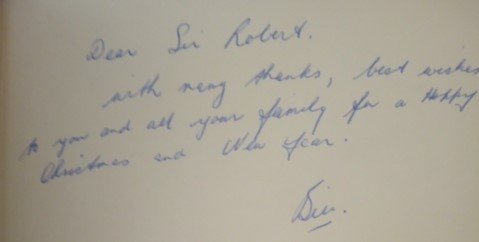 Dear Sir Robert.
with many thanks, best wishes
to you and all your family for a Happy
Christmas and New Year.
Bill.